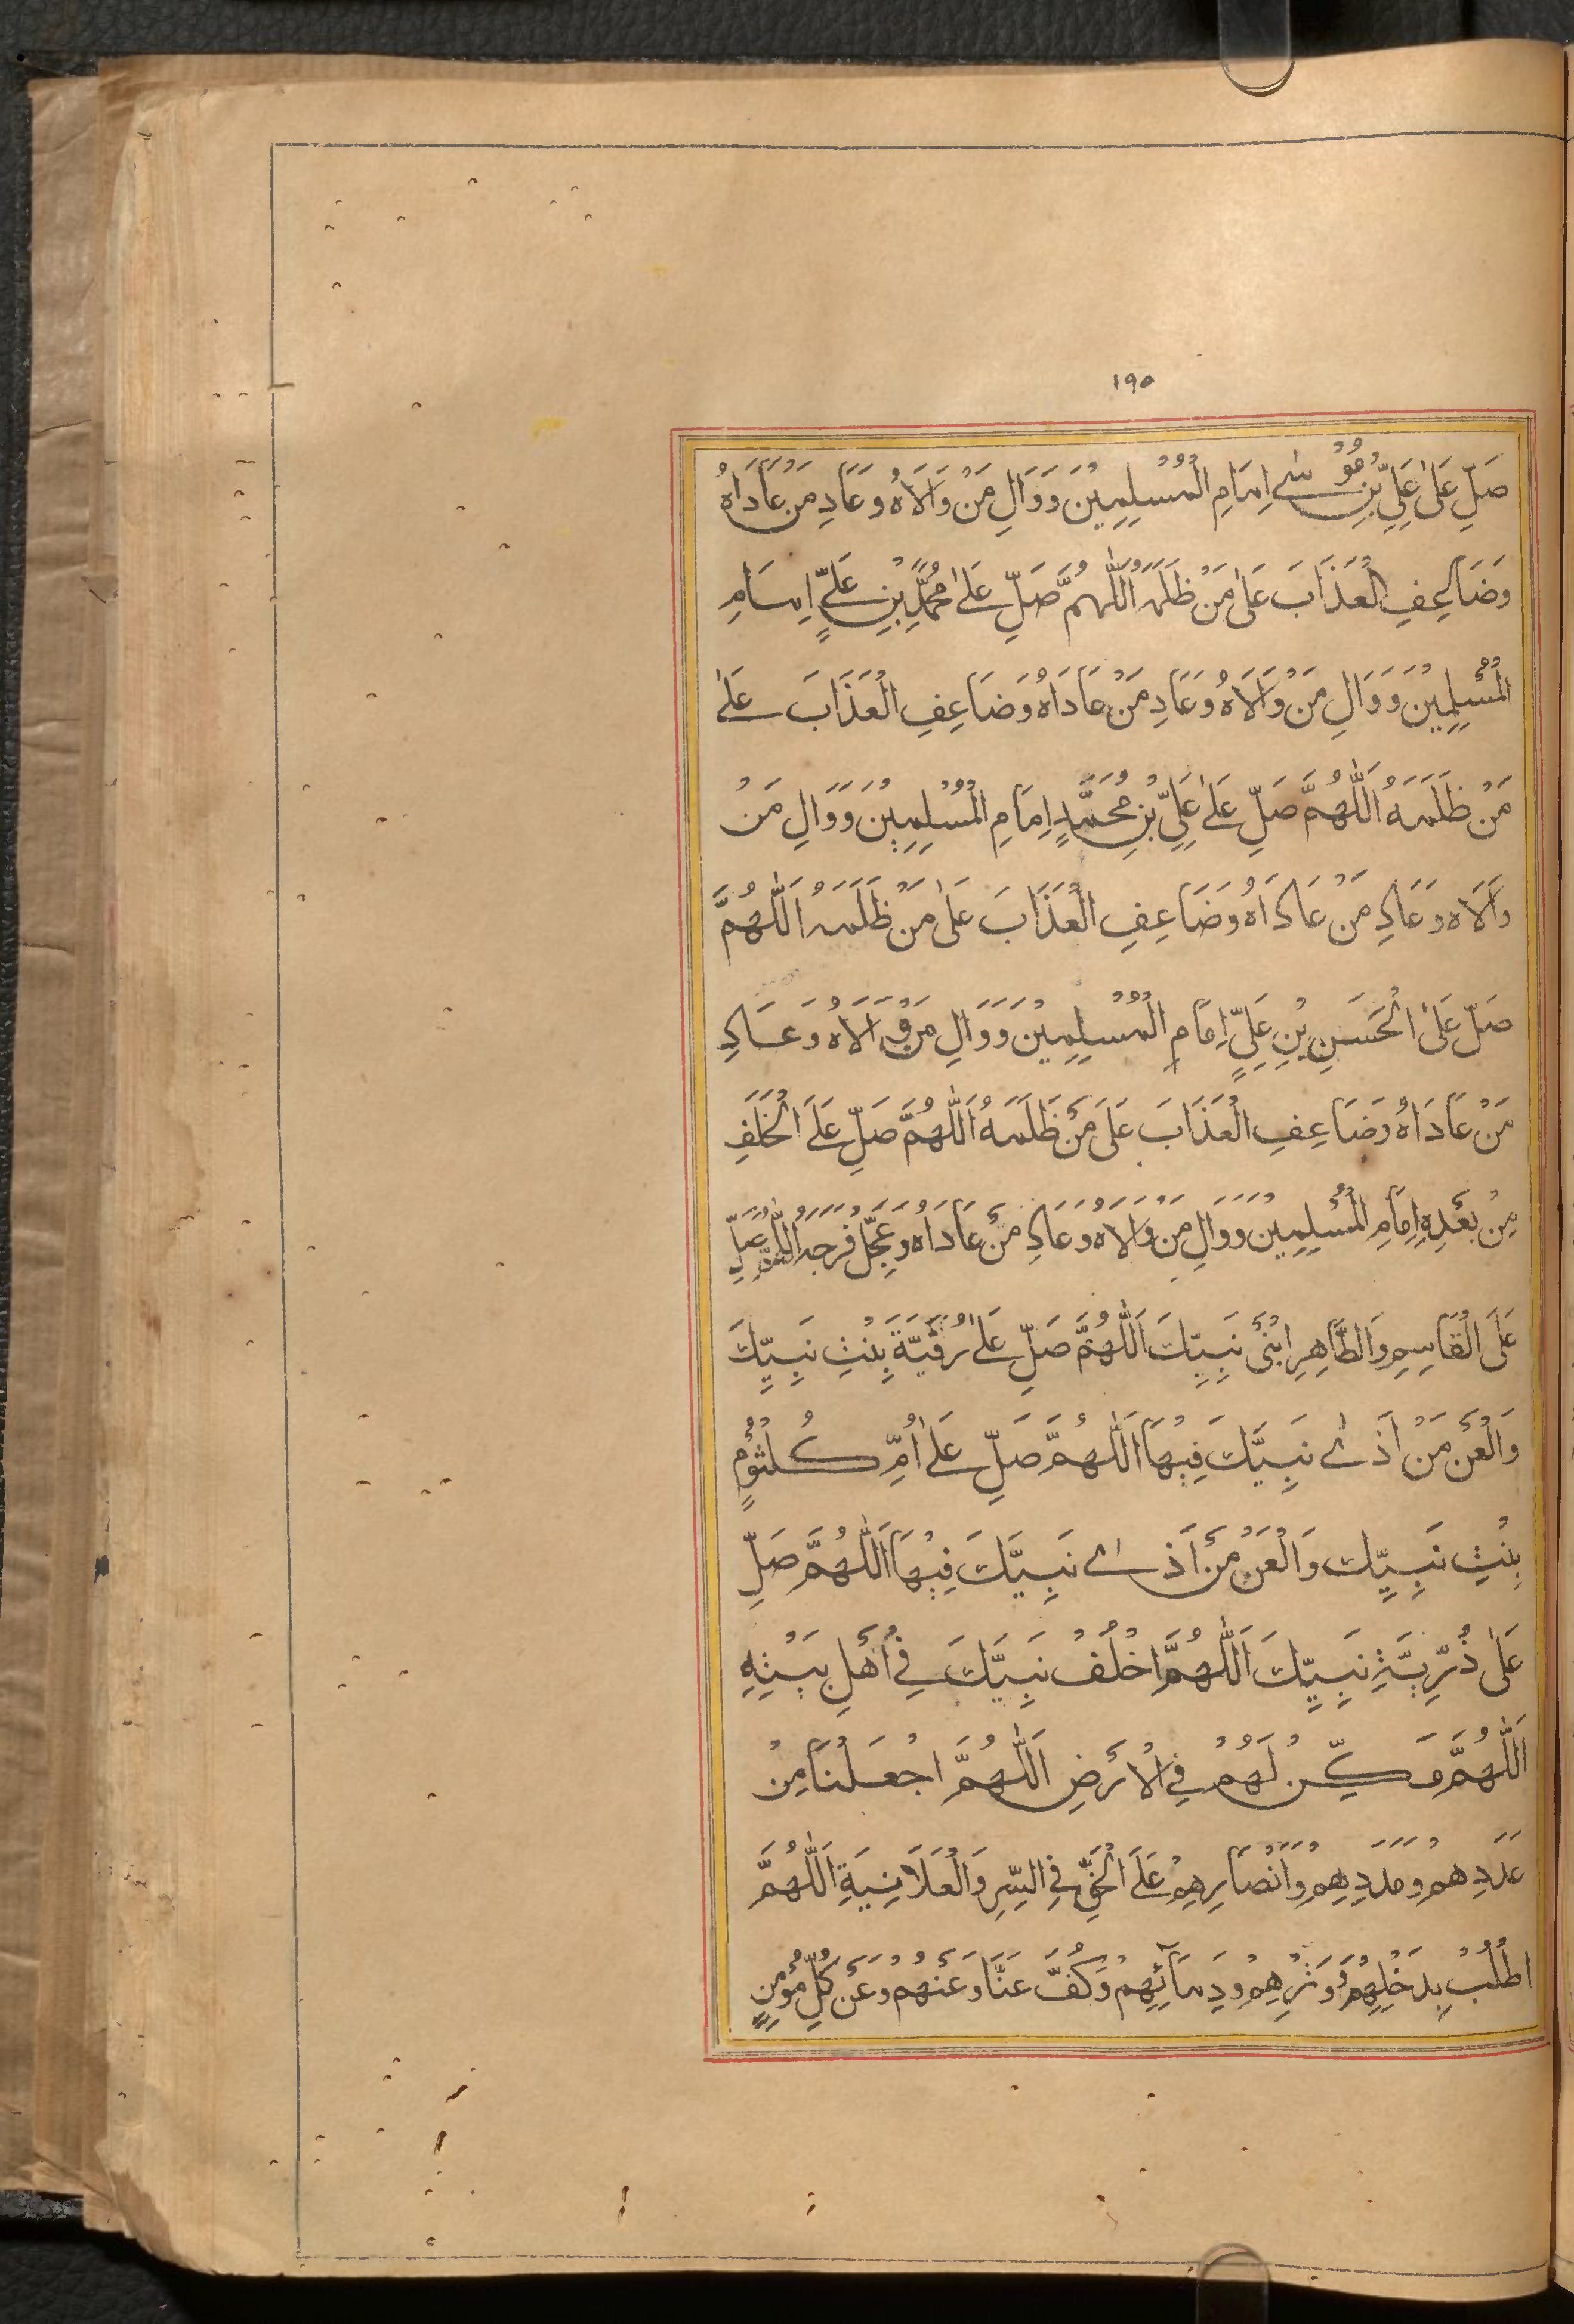 ١٩٥
صَلِّ عَلىٰ عَلِيِّ بْنِ مُوْسٰے اِمَامِ الْمُسْلِمِيْنَ وَوَالِ مَنْ وَالَاهُ وَعَادِ مَنْ عَادَاهُ
وَضَاعِفِ الْعَذَابَ عَلىٰ مَنْ ظَلَمَهُ اَللّٰهُمَّ صَلِّ عَلىٰ مُحَمَّدِ بْنِ عَلِيٍّ اِمَامِ
الْمُسْلِمِيْنَ وَوَالِ مَنْ وَالَاهُ وَعَادِ مَنْ عَادَاهُ وَضَاعِفِ الْعَذَابَ عَلىٰ
مَنْ ظَلَمَهُ اَللّٰهُمَّ صَلِّ عَلىٰ عَلِيِّ بْنِ مُحَمَّدٍ اِمَامِ الْمُسْلِمِيْنَ وَوَالِ مَنْ
وَالَاهُ وَعَادِ مَنْ عَادَاهُ وَضَاعِفِ الْعَذَابَ عَلىٰ مَنْ ظَلَمَهُ اَللّٰهُمَّ
صَلِّ عَلىٰ الْحَسَنِ بْنِ عَلِيٍّ اِمَامِ الْمُسْلِمِيْنَ وَوَالِ مَنْ وَالَاهُ وَعَادِ
مَنْ عَادَاهُ وَضَاعِفِ الْعَذَابَ عَلىَ مَنْ ظَلَمَهُ اَللّٰهُمَّ صَلِّ عَلَے الْخَلَفِ
مِنْ بَعْدِهِ اِمَامِ الْمُسْلِمِيْنَ وَوَالِ مَنْ وَالَاهُ وَعَادِ مَنْ عَادَاهُ وَعَجِّلْ فَرَجَهُ اَللّٰهُمَّ صَلِّ
عَلَى الْقَاسِمِ وَالطَّاهِرِ ابْنَىْ نَبِيِّكَ اَللّٰهُمَّ صَلِّ عَلىٰ رُقَيَّةَ بِنْتِ نَبِيِّكَ
وَالْعَنْ مَنْ اَذٰے نَبِيَّكَ فِيْهَا اَللّٰهُمَّ صَلِّ عَلىٰ اُمِّ كُلْثُوْمٍ
بِنْتِ نَبِيِّكَ وَالْعَنْ مَنْ اَذٰے نَبِيَّكَ فِيْهَا اَللّٰهُمَّ صَلِّ
عَلىٰ ذُرِّيَّةِ نَبِيِّكَ اَللّٰهُمَّ اخْلُفْ نَبِيَّكَ فِے اَهْلِ بَيْتِهِ
اَللّٰهُمَّ مَكِّنْ لَهُمْ فِے الْاَرْضِ اَللّٰهُمَّ اجْعَلْنَا مِنْ
عَدَدِهِمْ وَمَدَدِهِمْ وَاَنْصَارِهِمْ عَلَے الْحَقِّ فِے السِّرِّ وَالْعَلَانِيَةِ اَللّٰهُمَّ
اطْلُبْ بِدَخْلِهِمْ وَوَتْرِهِمْ وَدِمَآئِهِمْ وَكُفَّ عَنَّا وَعَنْهُمْ وَعَنْ كُلِّ مُؤْمِنٍ